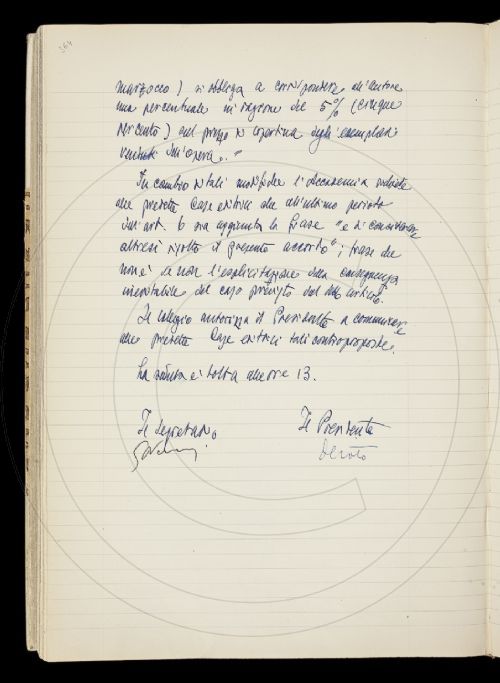 364
marzocco) si obbliga a corrispondere all'autore
una percentuale in ragione del 5% (cinque
percento) sul prezzo di copertina degli esemplari
venduti dell'opera."
In cambio di tali modifiche l'Accademia
alle predette Case editrici che all'ultimo periodo
dell'art. 6 sia aggiunta la frase "e di considerare
altresì risolto il presente accordo"; frase che
non è se non l'esplicitazione della conseguenza
inevitabile del caso previsto dal articolo.
Il Collegio autorizza il Presidente a comunicare
alle predette Case editrici tali controproposte.
La seduta è tolta alle ore 13.
Il Segretario
Il Presidente
Devoto